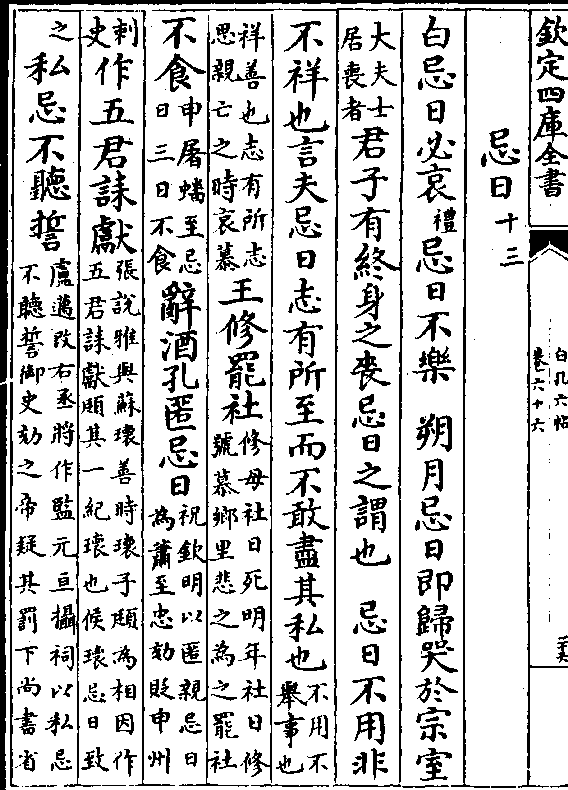 欽定四庫全書
白孔六帖
卷六十六
忌日十三
白忌日必哀禮忌日不樂　朔月忌日即歸哭於宗室
大夫士
居喪者
君子有終身之喪忌日之謂也　忌日不用非
不祥也言夫忌日志有所至而不敢盡其私也
不用不
舉事也
祥善也志有所志
思親亡之時哀慕
王修罷社
修母社日死明年社日修
號慕鄉里悲之為之罷社
不食
申屠蟠至忌
日三日不食
辭酒孔匿忌日
祝欽明以匿親忌日
為蕭至忠劾貶申州
刺
史
作五君誄獻
張說雅與蘇瓌善時瓌子頲為相因作
五君誄獻頲其一紀瓌也候瓌忌日致
之
私忌不聽誓
盧邁改右丞將作監元亘攝祠以私忌
不聽誓御史劾之帝疑其罰下尚書省